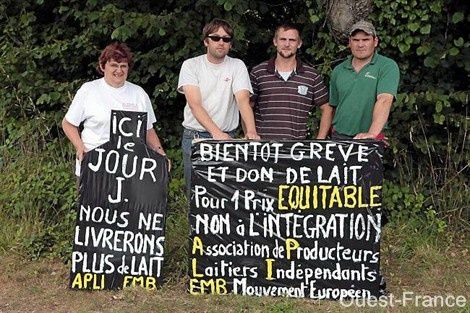 ICI
le
JOUR
J.
NOUS NE
LIVRERONS
PLUS de LAIT
APLI EMB
BIENTOT GREVE
ET DON DE LAIT
Pour 1 Prix EQUITABLE
NON à L'INTEGRATION
Association de Producteurs
Laitiers Indépendants
EMB Mouvement Européen
Ouest-France